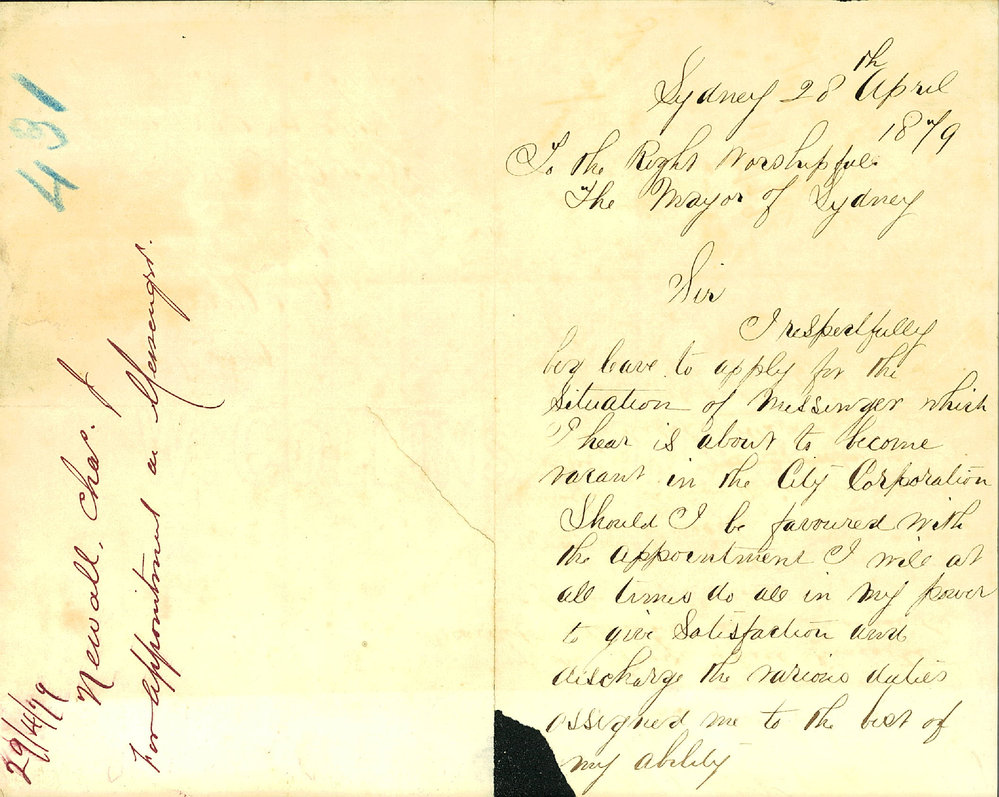 431
29/4/79
Newall, Chas. J
for appointment as Messenger.
Sydney 28th April
1879
To the Right Worshipful
The Mayor of Sydney
Sir
I respectfully
beg leave to apply for the
Situation of Messinger which
I hear is about to become
vacant in the City Corporation
Should I be favoured with
the appointment I will at
all times do all in my power
to give Satisfaction and
discharge the various duties
assigned me to the best of
my ability